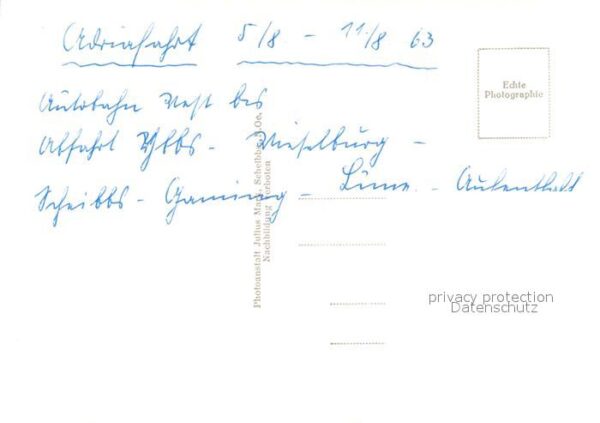 Adriafahrt 5/8 - 11/8 63
Autobahn West bis
Abfahrt Ybbs - Wieselburg -
Scheibbs - Gaming - - Aufenthalt
Echte
Photographie
Photoanstalt Julius Scheibbs,
Nachbildung verboten
privacy protection
Datenschutz